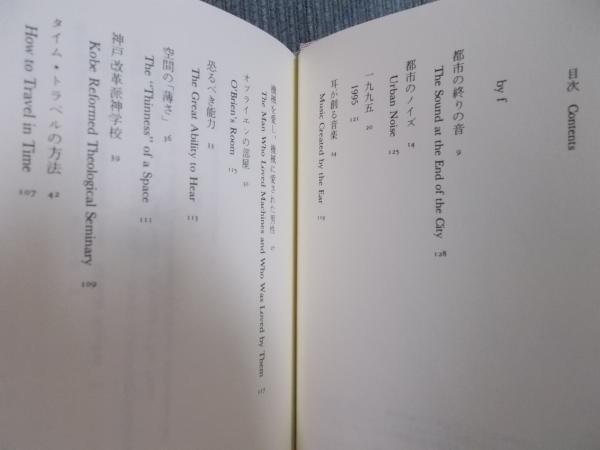 目次 Contents
by f
都市の終りの音 9
The Sound at the End of the City 128
都市のノイズ 14
Urban Noise 125
一九九五 20
1995 121
耳が創る音楽 24
Music Created by the Ear 119
機械を愛し、機械に愛された男性 27
The Man Who Loved Machines and Who Was Loved by Them 117
オブライエンの部屋 30
O'Brien's Room 115
恐るべき能力 33
The Great Ability to Hear 113
空間の「薄さ」 36
The "Thinness" of a Space 111
神戸改革派神学校 39
Kobe Reformed Theological Seminary 109
タイム・トラベルの方法 42
How to Travel in Time 107